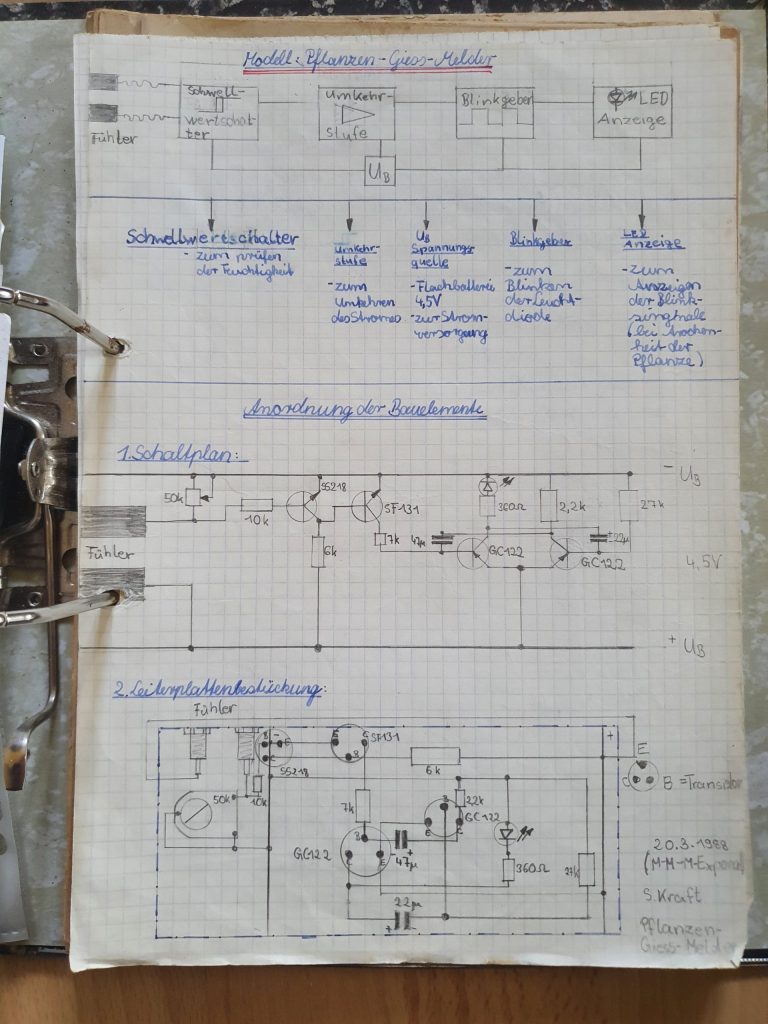 Modell: Pflanzen-Giess-Melder
Schwell-
wertschal-
tter
Umkehr-
stufe
Blinkgeber
LED
Anzeige
Fühler
UB
Schnellwertschalter
- zum prüfen
der Feuchtigkeit
Umkehr-
stufe
- zum
Umkehren
des Stromes
UB
Spannungs
quelle
- Flachbatterie
4,5V
- zur Strom-
versorgung
Blinkgeber
- zum
Blinken
der Leucht-
diode
LED
Anzeige
- zum
Anzeigen
der Blink-
singnale
(bei Trocken-
heit der
Pflanze)
Anordnung der Bauelemente
1. Schaltplan:
- UB
50k
10k
SS218
6k
SF131
7k
47µ
GC122
360Ω
2,2k
22µ
GC122
27k
Fühler
4,5V
+ UB
2. Leiterplattenbestückung:
Fühler
B
C
SS218
E
C
B
SF131
6k
+
E
C B = Transistor
50k
10k
7k
2,2k
B
E
C
GC122
GC122
B
C
E
- +
47µ
360Ω
27k
22µ
+
20.3.1988
(M-M-M-Exponat)
S. Kraft
Pflanzen-
Giess-Melder